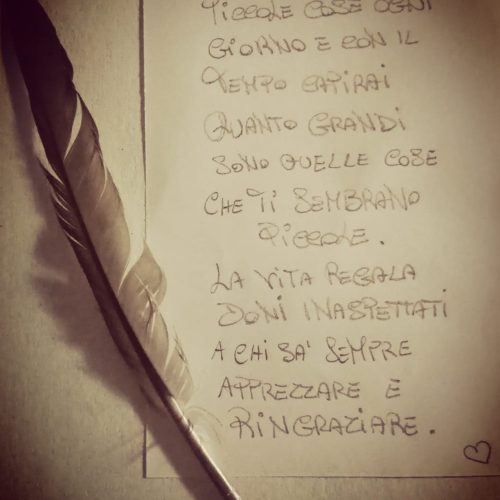 PICCOLE COSE OGNI
GIORNO E CON IL
TEMPO CAPIRAI
QUANTO GRANDI
SONO QUELLE COSE
CHE TI SEMBRANO
PICCOLE.
LA VITA REGALA
DONI INASPETTATI
A CHI SA' SEMPRE
APPREZZARE E
RINGRAZIARE.